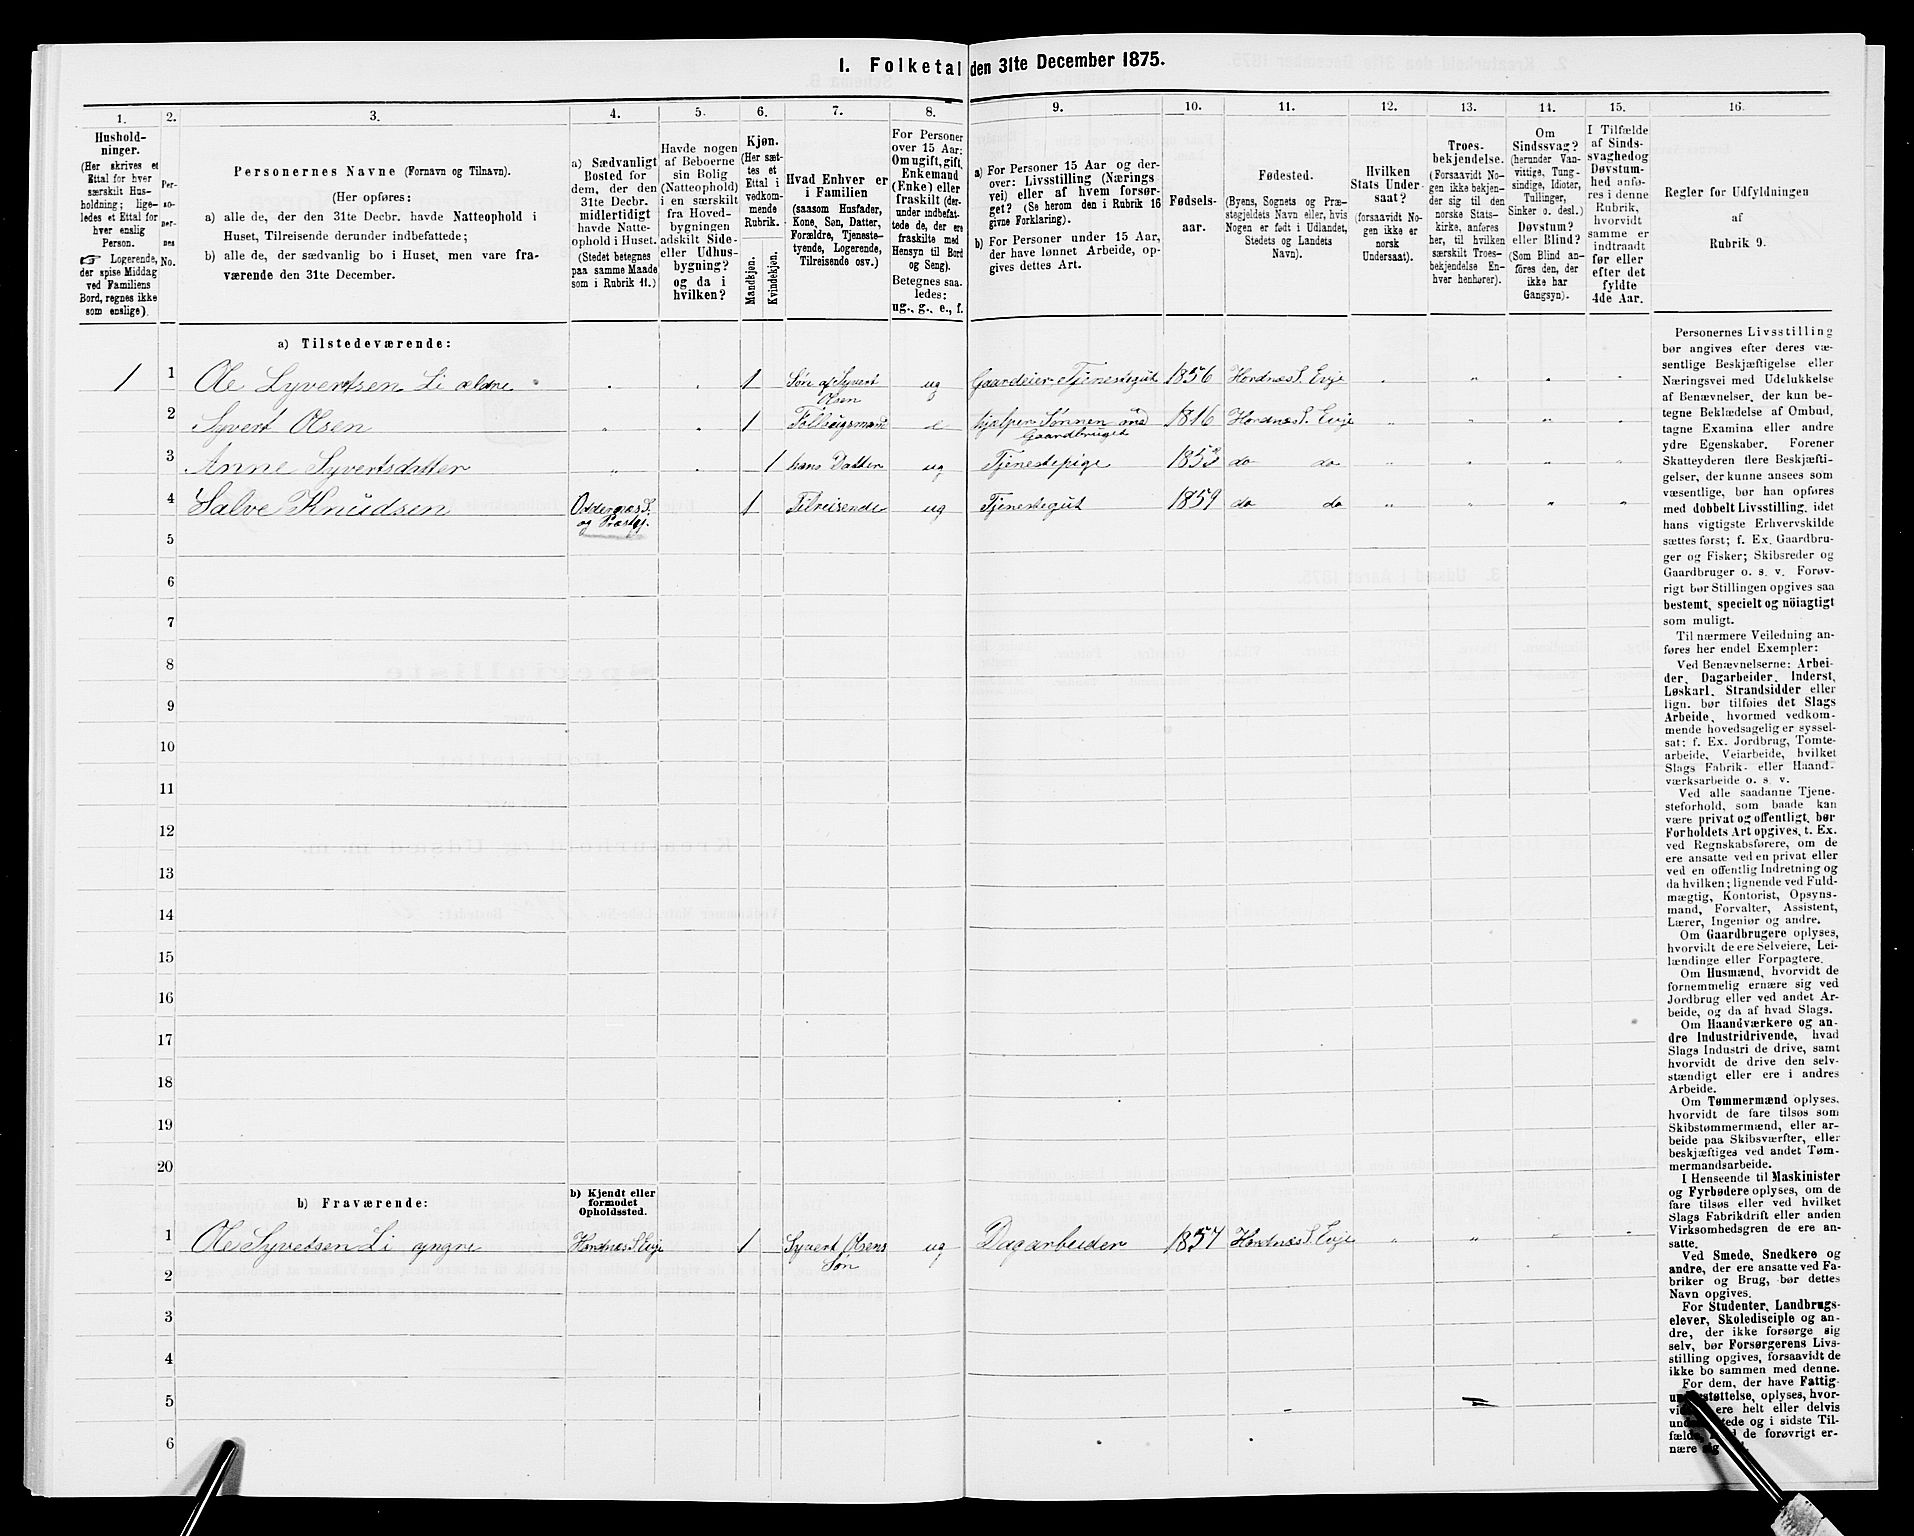 I. Folketal den 31te December 1875.
1. 2. 3. 4. 5. 6. 7. 8. 9. 10. 11. 12. 13. 14. 15. 16.
Hushold-
ninger.
(Her skrives et
Ettal for hver
særskilt Hus-
holdning; lige-
ledes et Ettal for
hver enslig
Person.
☞ Logerende,
der spise Middag
ved Familiens
Bord, regnes ikke
som enslige).
Per-
so-
ner-
nes
No.
Personernes Navne (Fornavn og Tilnavn).
(Her opføres:
a) alle de, der den 31te Decbr. havde Natteophold i
Huset, Tilreisende derunder indbefattede;
b) alle de, der sædvanlig bo i Huset, men vare fra-
værende den 31te December.
a) Sædvanligt
Bosted for
dem, der den
31te Decbr.
midlertidigt
havde Natte-
ophold i Huset.
(Stedet betegnes
paa samme Maade
som i Rubrik 11.)
Havde nogen
af Beboerne
sin Bolig
(Natteophold)
i en særskilt
fra Hoved-
bygningen
adskilt Side-
eller Udhus-
bygning?
og da i
hvilken?
Kjøn.
(Her sæt-
tes et
Ettal i
vedkom-
mende
Rubrik.
Mandkjøn.
Kvindekjøn.
Hvad Enhver er
i Familien
(saasom Husfader,
Kone, Søn, Datter,
Forældre, Tjeneste-
tyende, Logerende,
Tilreisende osv.)
For Personer
over 15 Aar:
Om ugift, gift,
Enkemand
(Enke) eller
fraskilt (der-
under indbefat-
tede de, der ere
fraskilte med
Hensyn til Bord
og Seng).
Betegnes saa-
ledes:
ug., g., e., f.
a) For Personer 15 Aar og der-
over: Livsstilling (Nærings-
vei) eller af hvem forsør-
get? (Se herom den i Rubrik 16
givne Forklaring).
b) For Personer under 15 Aar,
der have lønnet Arbeide, op-
gives dettes Art.
Fødsels-
aar.
Fødested.
(Byens, Sognets og Præ-
stegjeldets Navn eller, hvis
Nogen er født i Udlandet,
Stedets og Landets
Navn).
Hvilken
Stats Under-
saat?
(forsaavidt No-
gen ikke er
norsk
Undersaat).
Troes-
bekjendelse.
(Forsaavidt No-
gen ikke bekjen-
der sig til den
norske Stats-
kirke, anføres
her, til hvilken
særskilt Troes-
bekjendelse En-
hver henhører).
Om
Sindssvag?
(herunder Van-
vittige, Tung-
sindige, Idioter,
Tullinger,
Sinker o. desl.)
Døvstum?
eller Blind?
(Som Blind an-
føres den, der
ikke har
Gangsyn).
I Tilfælde
af Sinds-
svaghed og
Døvstum-
hed anfø-
res i denne
Rubrik,
hvorvidt
samme er
indtraadt
før eller
efter det
fyldte
4de Aar.
Regler for Udfyldningen
af
Rubrik 9.
a) Tilstedeværende:
1 1 Ole Syvertsen Li ældre " " 1 Søn af Syvert Olsen ug Gaardeier Tjenestegut 1856 Hordnæs S. Evje " " " "
2 Syvert Olsen " " 1 Følbeigsmand e hjælper Sønnen med Gaardbruget 1816 Hordnæs S. Evje " " " "
3 Anne Syvertsdatter " " 1 hans Datter ug Tjenestepige 1853 do do " " " "
4 Salve Knudsen Oddernæs S. og Præstgj. 1 Tilreisende ug Tjenestegut 1859 do do " " " "
5
6
7
8
9
10
11
12
13
14
15
16
17
18
19
20
b) Fraværende:
b) Kjendt eller
formodet
Opholdssted.
1 Ole Syvetsen Li yngre Hordnæs S. Evje 1 Syvert Olsens Søn ug Dagarbeider 1857 Hordnæs S. Evje " " " "
2
3
4
5
6
Personernes Livsstilling
bør angives efter deres væ-
sentlige Beskjæftigelse eller
Næringsvei med Udelukkelse
af Benævnelser, der kun be-
tegne Beklædelse af Ombud,
tagne Examina eller andre
ydre Egenskaber. Forener
Skatteyderen flere Beskjæfti-
gelser, der kunne ansees som
væsentlige, bør han opføres
med dobbelt Livsstilling, idet
hans vigtigste Erhvervskilde
sættes først; f. Ex. Gaardbru-
ger og Fisker; Skibsreder og
Gaardbruger o. s. v. Forøv-
rigt bør Stillingen opgives saa
bestemt, specielt og nöiagtigt
som muligt.
Til nærmere Veiledning an-
føres her endel Exempler:
Ved Benævnelserne: Arbei-
der, Dagarbeider, Inderst,
Løskarl, Strandsidder eller
lign. bør tilføies det Slags
Arbeide, hvormed vedkom-
mende hovedsagelig er syssel-
sat; f. Ex. Jordbrug, Tomte-
arbeide, Veiarbeide, hvilket
Slags Fabrik- eller Haand-
værksarbeide o. s. v.
Ved alle saadanne Tjene-
steforhold, som baade kan
være privat og offentligt, bør
Forholdets Art opgives, t. Ex.
ved Regnskabsførere, om de
ere ansatte ved en privat eller
ved en offentlig Indretning og
da hvilken; lignende ved Fuld-
mægtig, Kontorist, Opsyns-
mand, Forvalter, Assistent,
Lærer, Ingeniør og andre.
Om Gaardbrugere oplyses,
hvorvidt de ere Selveiere, Lei-
lændinge eller Forpagtere.
Om Husmænd, hvorvidt de
fornemmelig ernære sig ved
Jordbrug eller ved andet Ar-
beide, og da af hvad Slags.
Om Haandværkere og an-
dre Industridrivende, hvad
Slags Industri de drive, samt
hvorvidt de drive den selv-
stændigt eller ere i andres
Arbeide.
Om Tømmermænd oplyses,
hvorvidt de fare tilsøs som
Skibstømmermænd, eller ar-
beide paa Skibsværfter, eller
beskjæftiges ved andet Tøm-
mermandsarbeide.
I Henseende til Maskinister
og Fyrbødere oplyses, om de
fare tilsøs eller ved hvilket
Slags Fabrikdrift eller anden
Virksomhedsgren de ere an-
satte.
Ved Smede, Snedkere og
andre, der ere ansatte ved Fa-
briker og Brug, bør dettes
Navn opgives.
For Studenter, Landbrugs-
elever, Skoledisciple og an-
dre, der ikke forsørge sig
selv, bør Forsørgerens Livs-
stilling opgives, forsaavidt de
ikke bo sammen med denne.
For dem, der have Fattig-
understøttelse, oplyses, hvor-
ere helt eller delvis
og i sidste Til-
de forøvrigt er-
nære sig